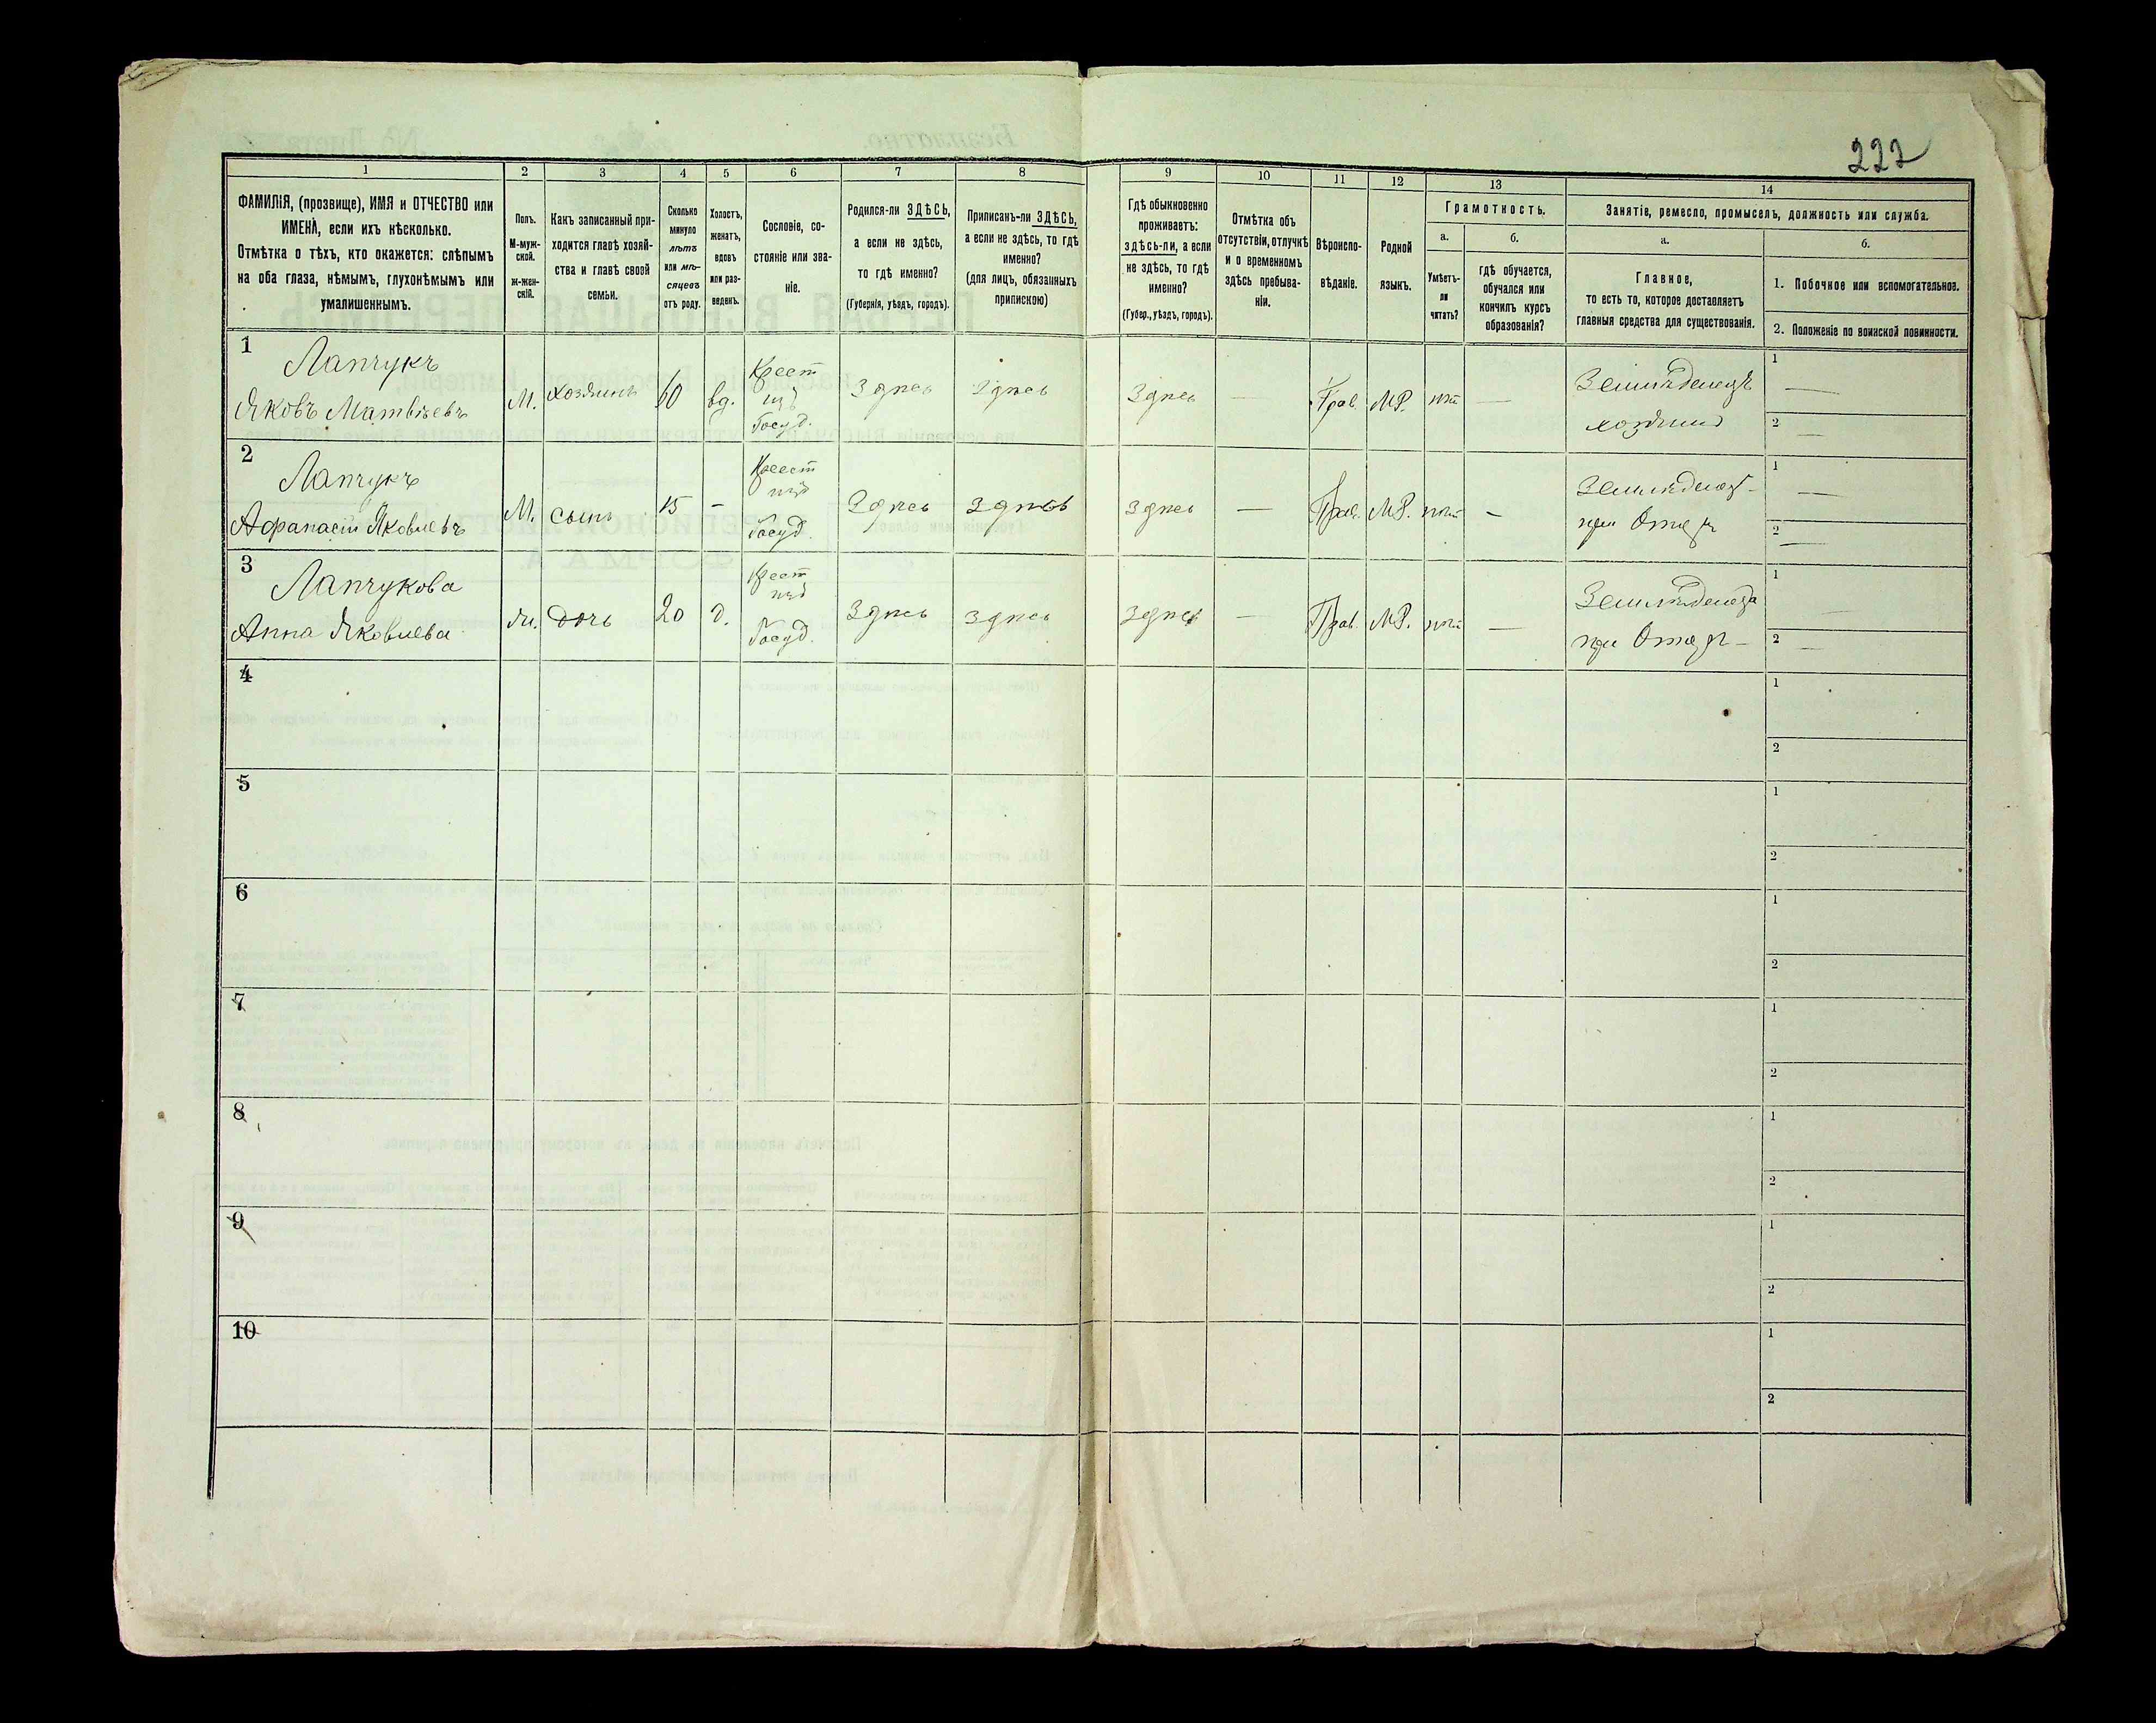 222
1
2
3
4
5
6
7
8
9
10
11
12
13
14
ФАМИЛІЯ, (прозвище), ИМЯ и ОТЧЕСТВО или
ИМЕНА, если ихъ нѣсколько.
Отмѣтка о тѣхъ, кто окажется: слѣпымъ
на оба глаза, нѣмымъ, глухонѣмымъ или
умалишеннымъ.
Полъ.
М-муж-
ской.
ж-жен-
скій.
Какъ записанный при-
ходится главѣ хозяй-
ства и главѣ своей
семьи.
Сколько
минуло
лѣтъ
или мѣ-
сяцевъ
отъ роду.
Холостъ,
женатъ,
вдовъ
или раз-
веденъ.
Сословіе, со-
стояніе или зва-
ніе.
Родился-ли ЗДѢСЬ,
а если не здѣсь,
то гдѣ именно?
(Губернія, уѣздъ, городъ).
Приписанъ-ли ЗДѢСЬ,
а если не здѣсь, то гдѣ
именно?
(для лицъ, обязанныхъ
припискою)
Гдѣ обыкновенно
проживаетъ:
здѣсь-ли, а если
не здѣсь, то гдѣ
именно?
(Губер., уѣздъ, городъ).
Отмѣтка объ
отсутствіи, отлучкѣ
и о временномъ
здѣсь пребыва-
ніи.
Вѣроиспо-
вѣданіе.
Родной
языкъ.
Грамотность.
а.
Умѣетъ-
ли
читать?
б.
гдѣ обучается,
обучался или
кончилъ курсъ
образованія?
Занятіе, ремесло, промыселъ, должность или служба.
а.
Главное,
то есть то, которое доставляетъ
главныя средства для существованія.
б.
1. Побочное или вспомогательное.
2. Положеніе по воинской повинности.
1
Лапчукъ
Яковъ Матвѣевъ
М.
хозяинъ
60
вд.
Крест
изъ
Госуд.
Здѣсь
Здѣсь
Здѣсь
—
Прав.
МР.
нѣт
—
Земледѣлецъ
хозяинъ
1
—
2
—
2
Лапчукъ
Афанасій Яковлевъ
М.
сынъ
15
-
Крест
изъ
Госуд.
Здѣсь
Здѣсь
Здѣсь
—
Прав.
МР.
нѣт
-
Земледѣлец-
при Отцѣ
1
—
2
—
3
Лапчукова
Анна Яковлева
ж.
дочь
20
д.
Крест
изъ
Госуд.
Здѣсь
Здѣсь
Здѣсь
—
Прав.
МР.
нѣт
—
при Отцѣ —
1
—
2
—
4
1
2
5
1
2
6
1
2
7
1
2
8
1
2
9
1
2
10
1
2